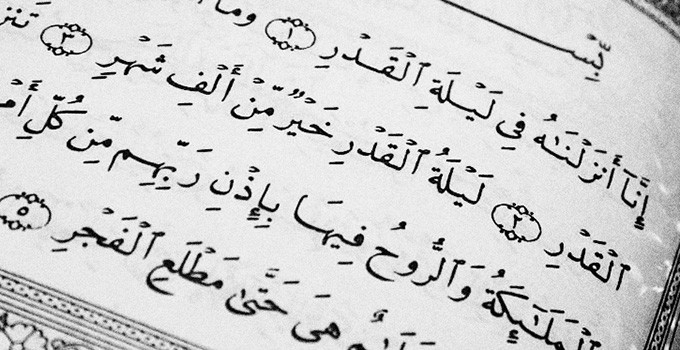 بِّسْ
إِنَّآ أَنزَلْنَٰهُ فِي لَيْلَةِ ٱلْقَدْرِ ١ وَمَا
ٱلْقَدْرِ ٢ لَيْلَةُ ٱلْقَدْرِ خَيْرٌ مِّنْ أَلْفِ شَهْرٍ ٣ تَنَز
ٱلْمَلَٰٓئِكَةُ وَٱلرُّوحُ فِيهَا بِإِذْنِ رَبِّهِم مِّن كُلِّ أَمْ
هِيَ حَتَّىٰ مَطْلَعِ ٱلْفَجْرِ ٥